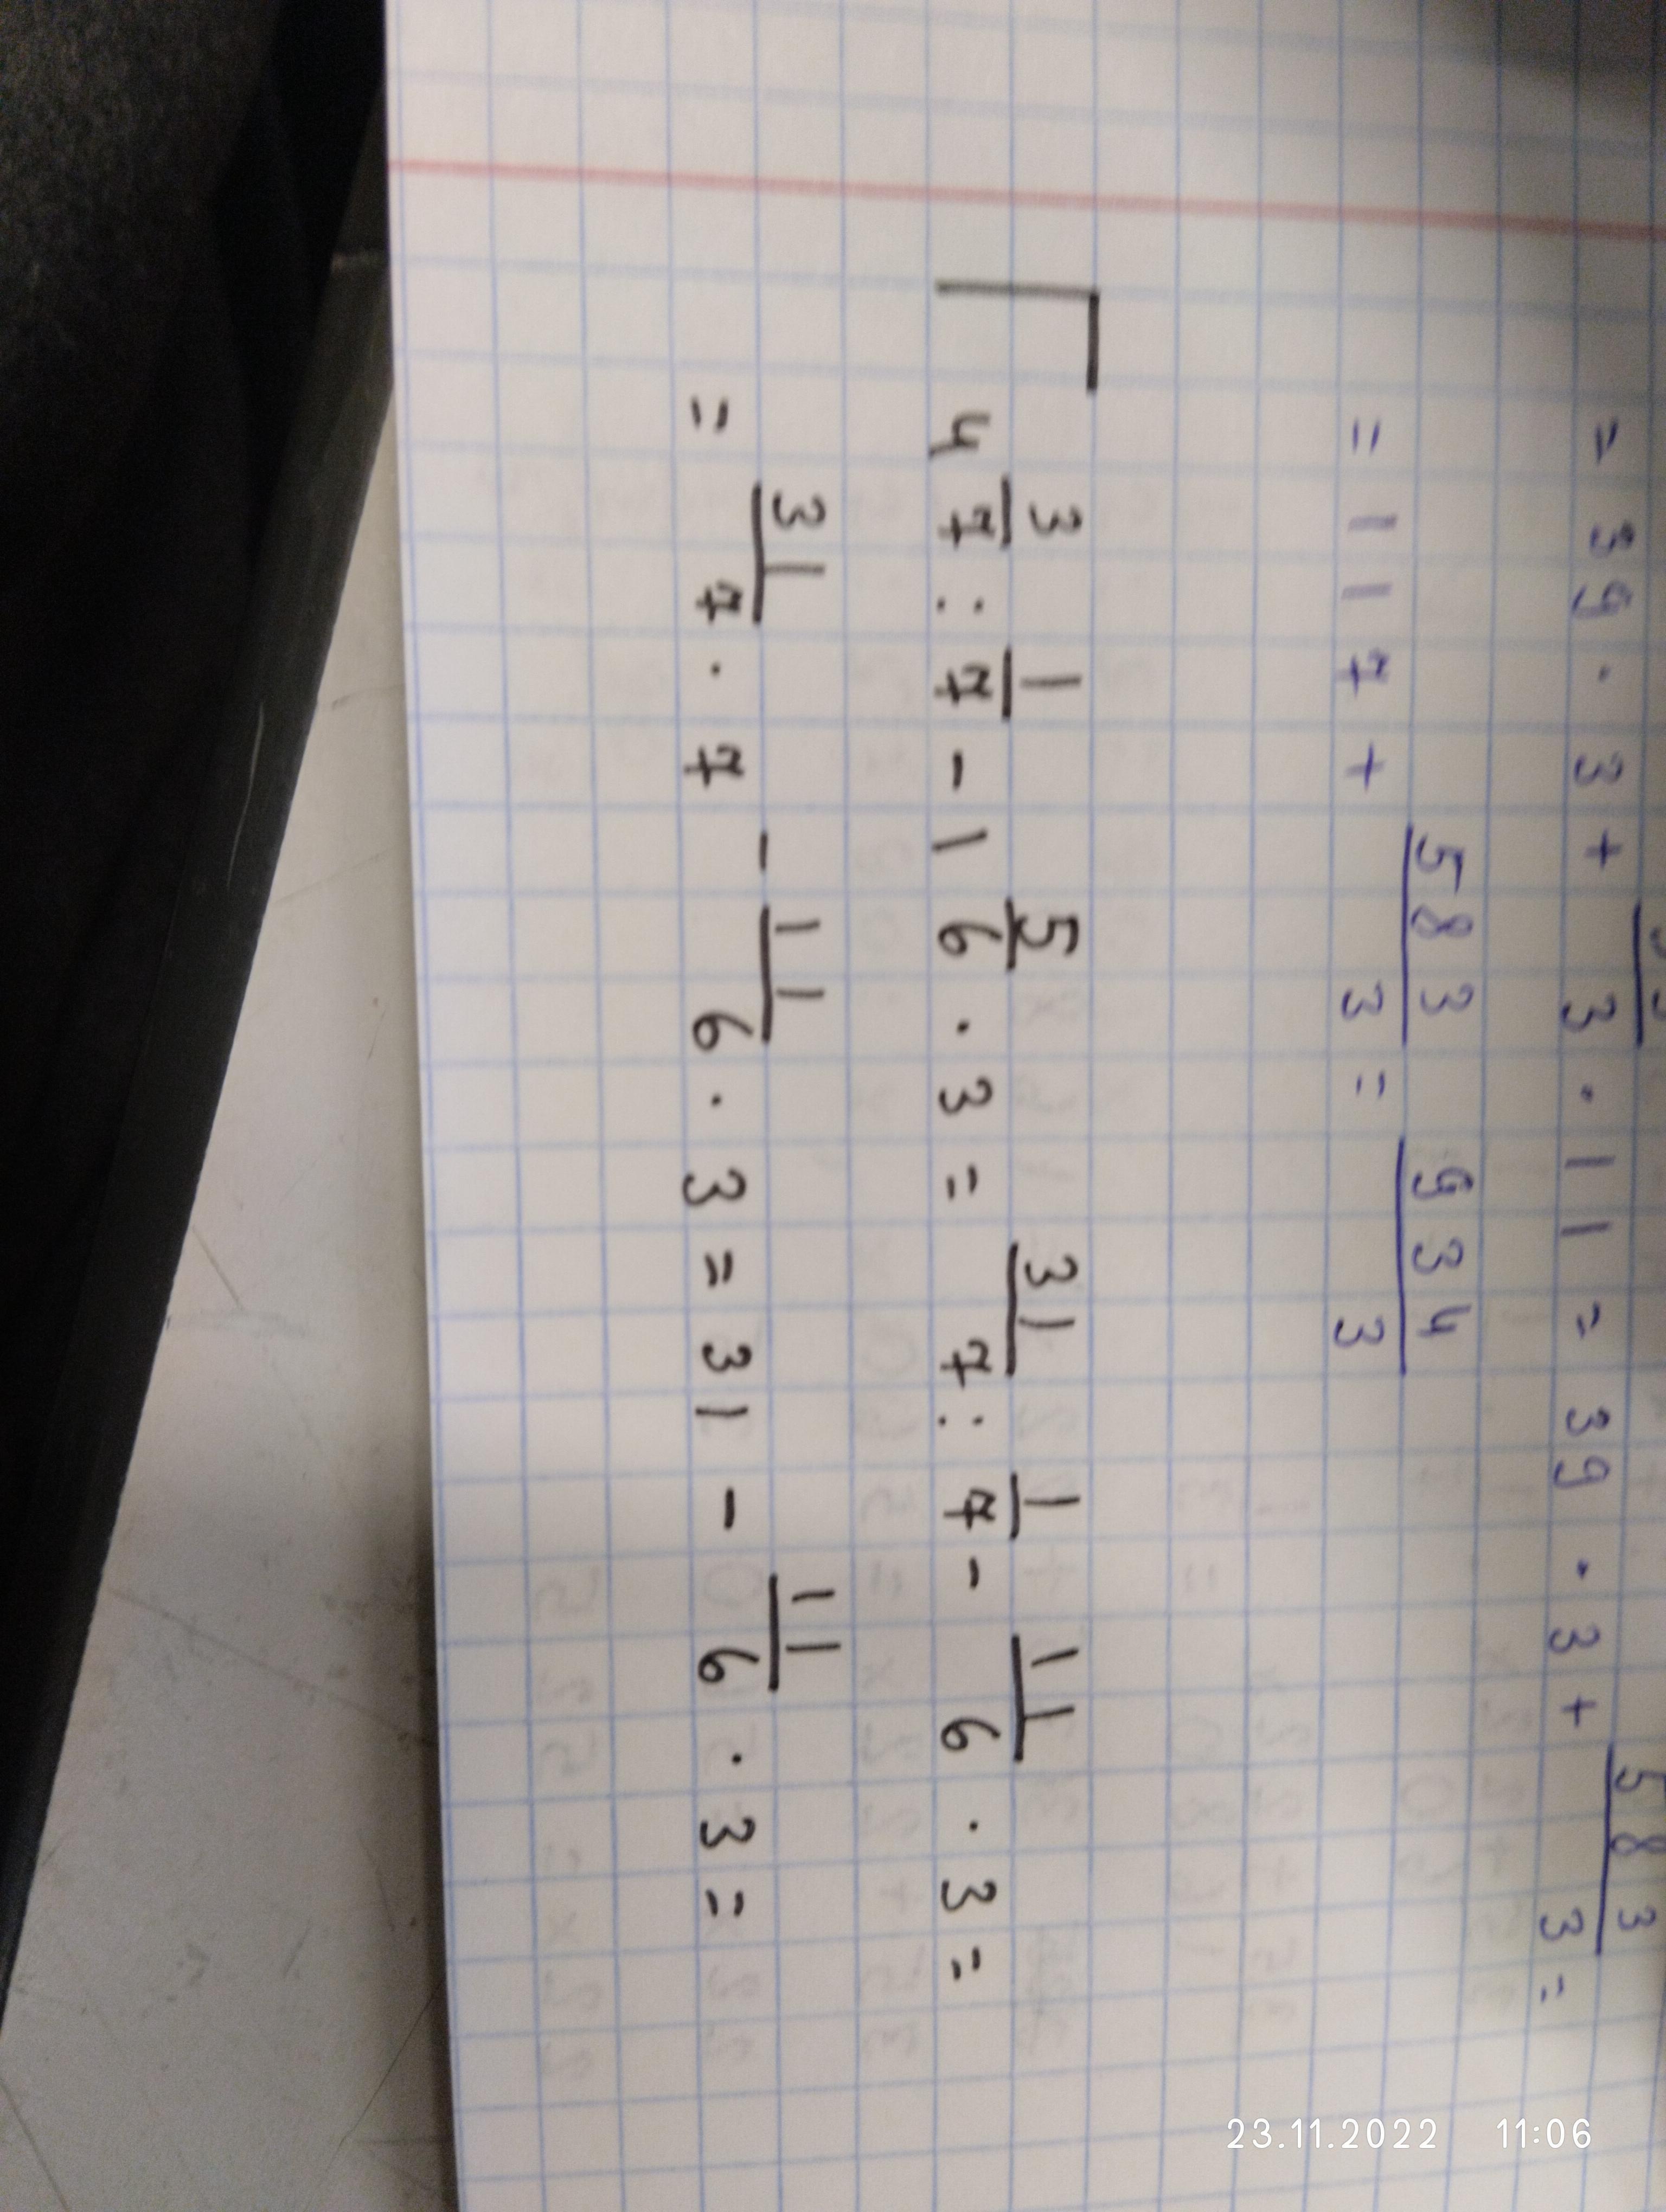 = 39 · 3 + 3 · 11 = 39 · 3 + 583/3 =
= 117 + 583/3 = 934/3
4 3/7 : 1/7 - 1 5/6 · 3 = 31/7 : 1/7 - 11/6 · 3 =
= 31/7 · 7 - 11/6 · 3 = 31 - 11/6 · 3 =
23.11.2022 11:06